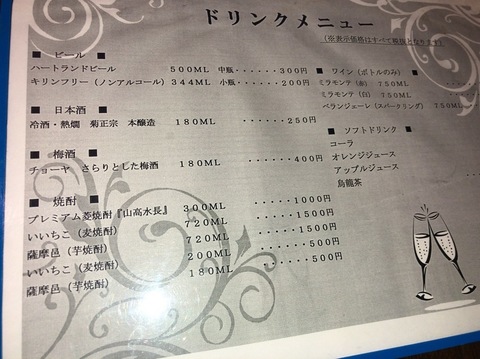 ドリンクメニュー
(※表示価格はすべて税抜となります)
■ ビール ■
ハートランドビール 500ML 中瓶・・・・・・300円
キリンフリー（ノンアルコール）344ML 小瓶・・・・・・200円
■ 日本酒 ■
冷酒・熱燗 菊正宗 本醸造 180ML ・・・・・・250円
■ 梅酒 ■
チョーヤ さらりとした梅酒 180ML ・・・・・・400円
■ 焼酎 ■
プレミアム菱焼酎『山高水長』 300ML ・・・・・・1000円
いいちこ（麦焼酎） 720ML ・・・・・・1500円
薩摩邑（芋焼酎） 720ML ・・・・・・1500円
いいちこ（麦焼酎） 200ML ・・・・・・500円
薩摩邑（芋焼酎） 180ML ・・・・・・500円
■ ワイン（ボトルのみ） ■
ミラモンテ（赤） 750ML
ミラモンテ（白） 750ML
ベランジェーレ（スパークリング） 750ML
■ ソフトドリンク ■
コーラ
オレンジジュース
アップルジュース
烏龍茶